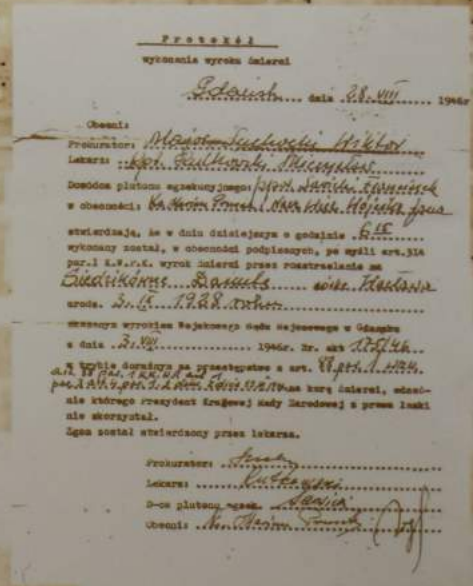 Protokół
wykonania wyroku śmierci
Gdańsk dnia 28.VIII 1946r
Obecni:
Prokurator: Major Suchocki Wiktor
Lekarz: kpt. Mieczysław
Dowódca plutonu egzekucyjnego: ppor. Sawicki Franciszek
w obecności: ks. Marian Prusak, Nacz. Więz. Wójcik
stwierdzają, że w dniu dzisiejszym o godzinie 6 15
wykonany został, w obecności podpisanych, po myśli art.314
par.1 K.W.P.K. wyrok śmierci przez rozstrzelanie na
Siedzikównę Danutę córkę Wacława
urodz. 3.IX 1928 roku
skazanym wyrokiem Wojskowego Sądu Rejonowego w Gdańsku
z dnia 3.VIII 1946r. Nr. akt 175/46
w trybie doraźnym za przestępstwo z art. 88 par. 1
na karę śmierci, odnoś-
nie którego Prezydent Krajowej Rady Narodowej z prawa łaski
nie skorzystał.
Zgon został stwierdzony przez lekarza.
Prokurator:
Lekarz:
D-ca plutonu egzek. Sawicki
Obecni: Ks. Marian Prusak